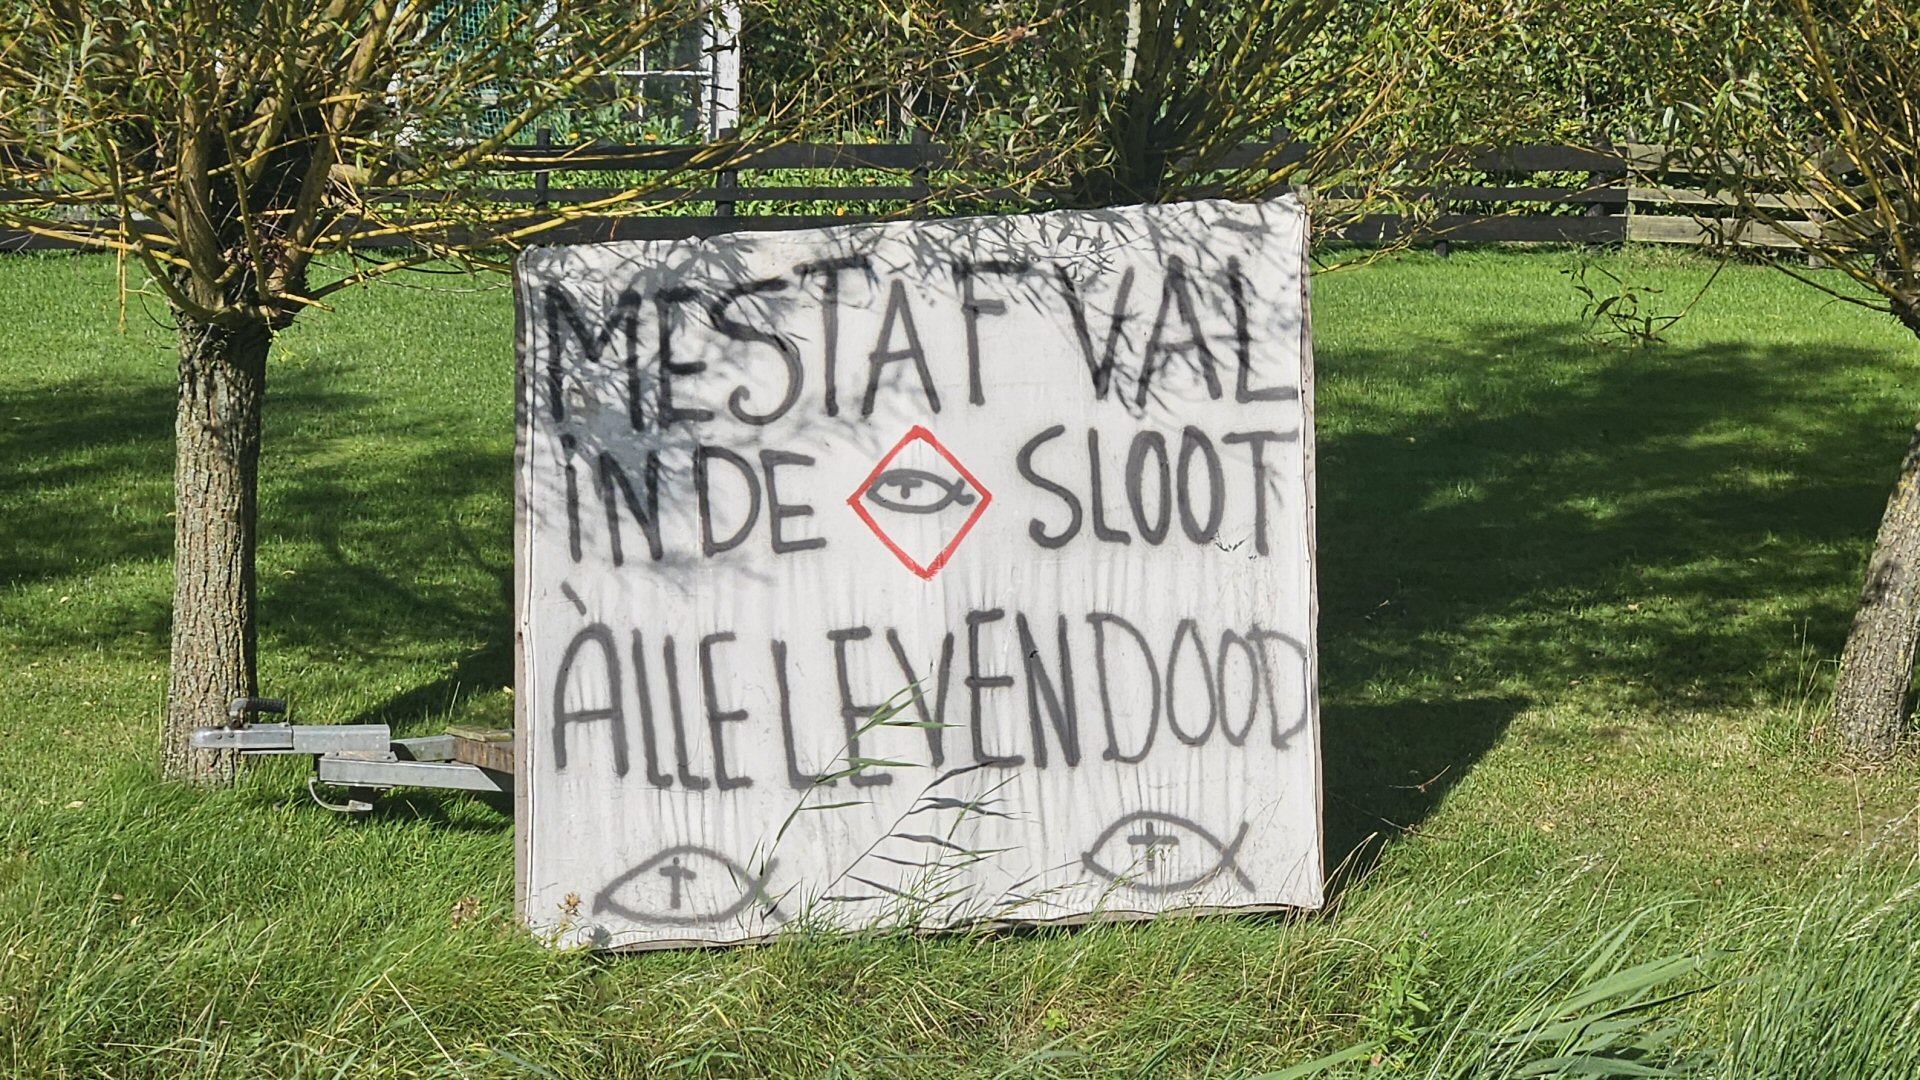 MESTAFVAL
IN DE SLOOT
ÀLLE LEVEN DOOD